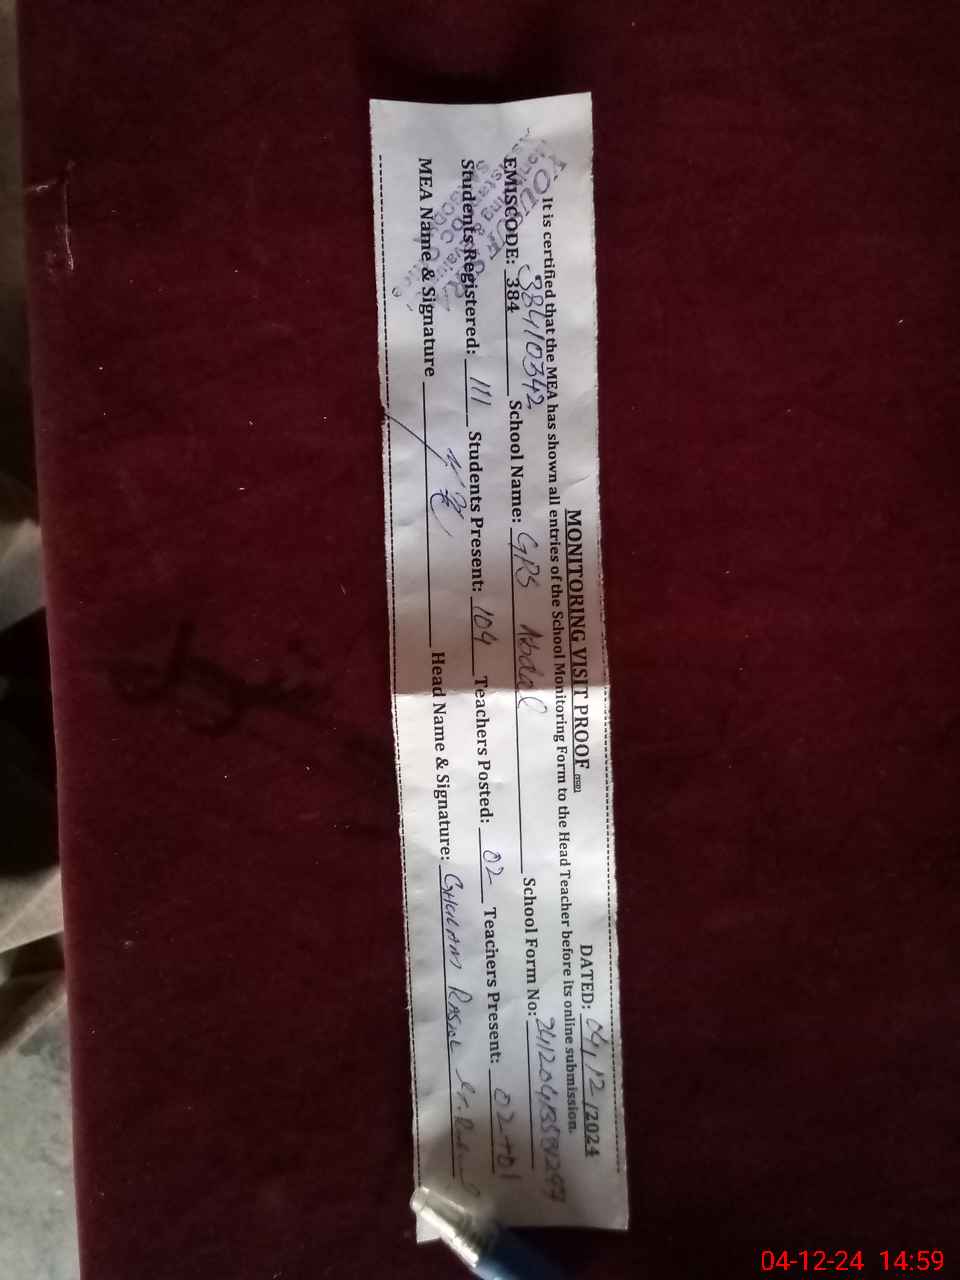 MONITORING VISIT PROOF DATED: 04/12/2024
It is certified that the MEA has shown all entries of the School Monitoring Form to the Head Teacher before its online submission.
38410342
EMISCODE: 384 School Name: GPS Abdal School Form No:
Students Registered: 111 Students Present: 104 Teachers Posted: 02 Teachers Present: 02+01
MEA Name & Signature Head Name & Signature: GHULAM RASUL
04-12-24 14:59